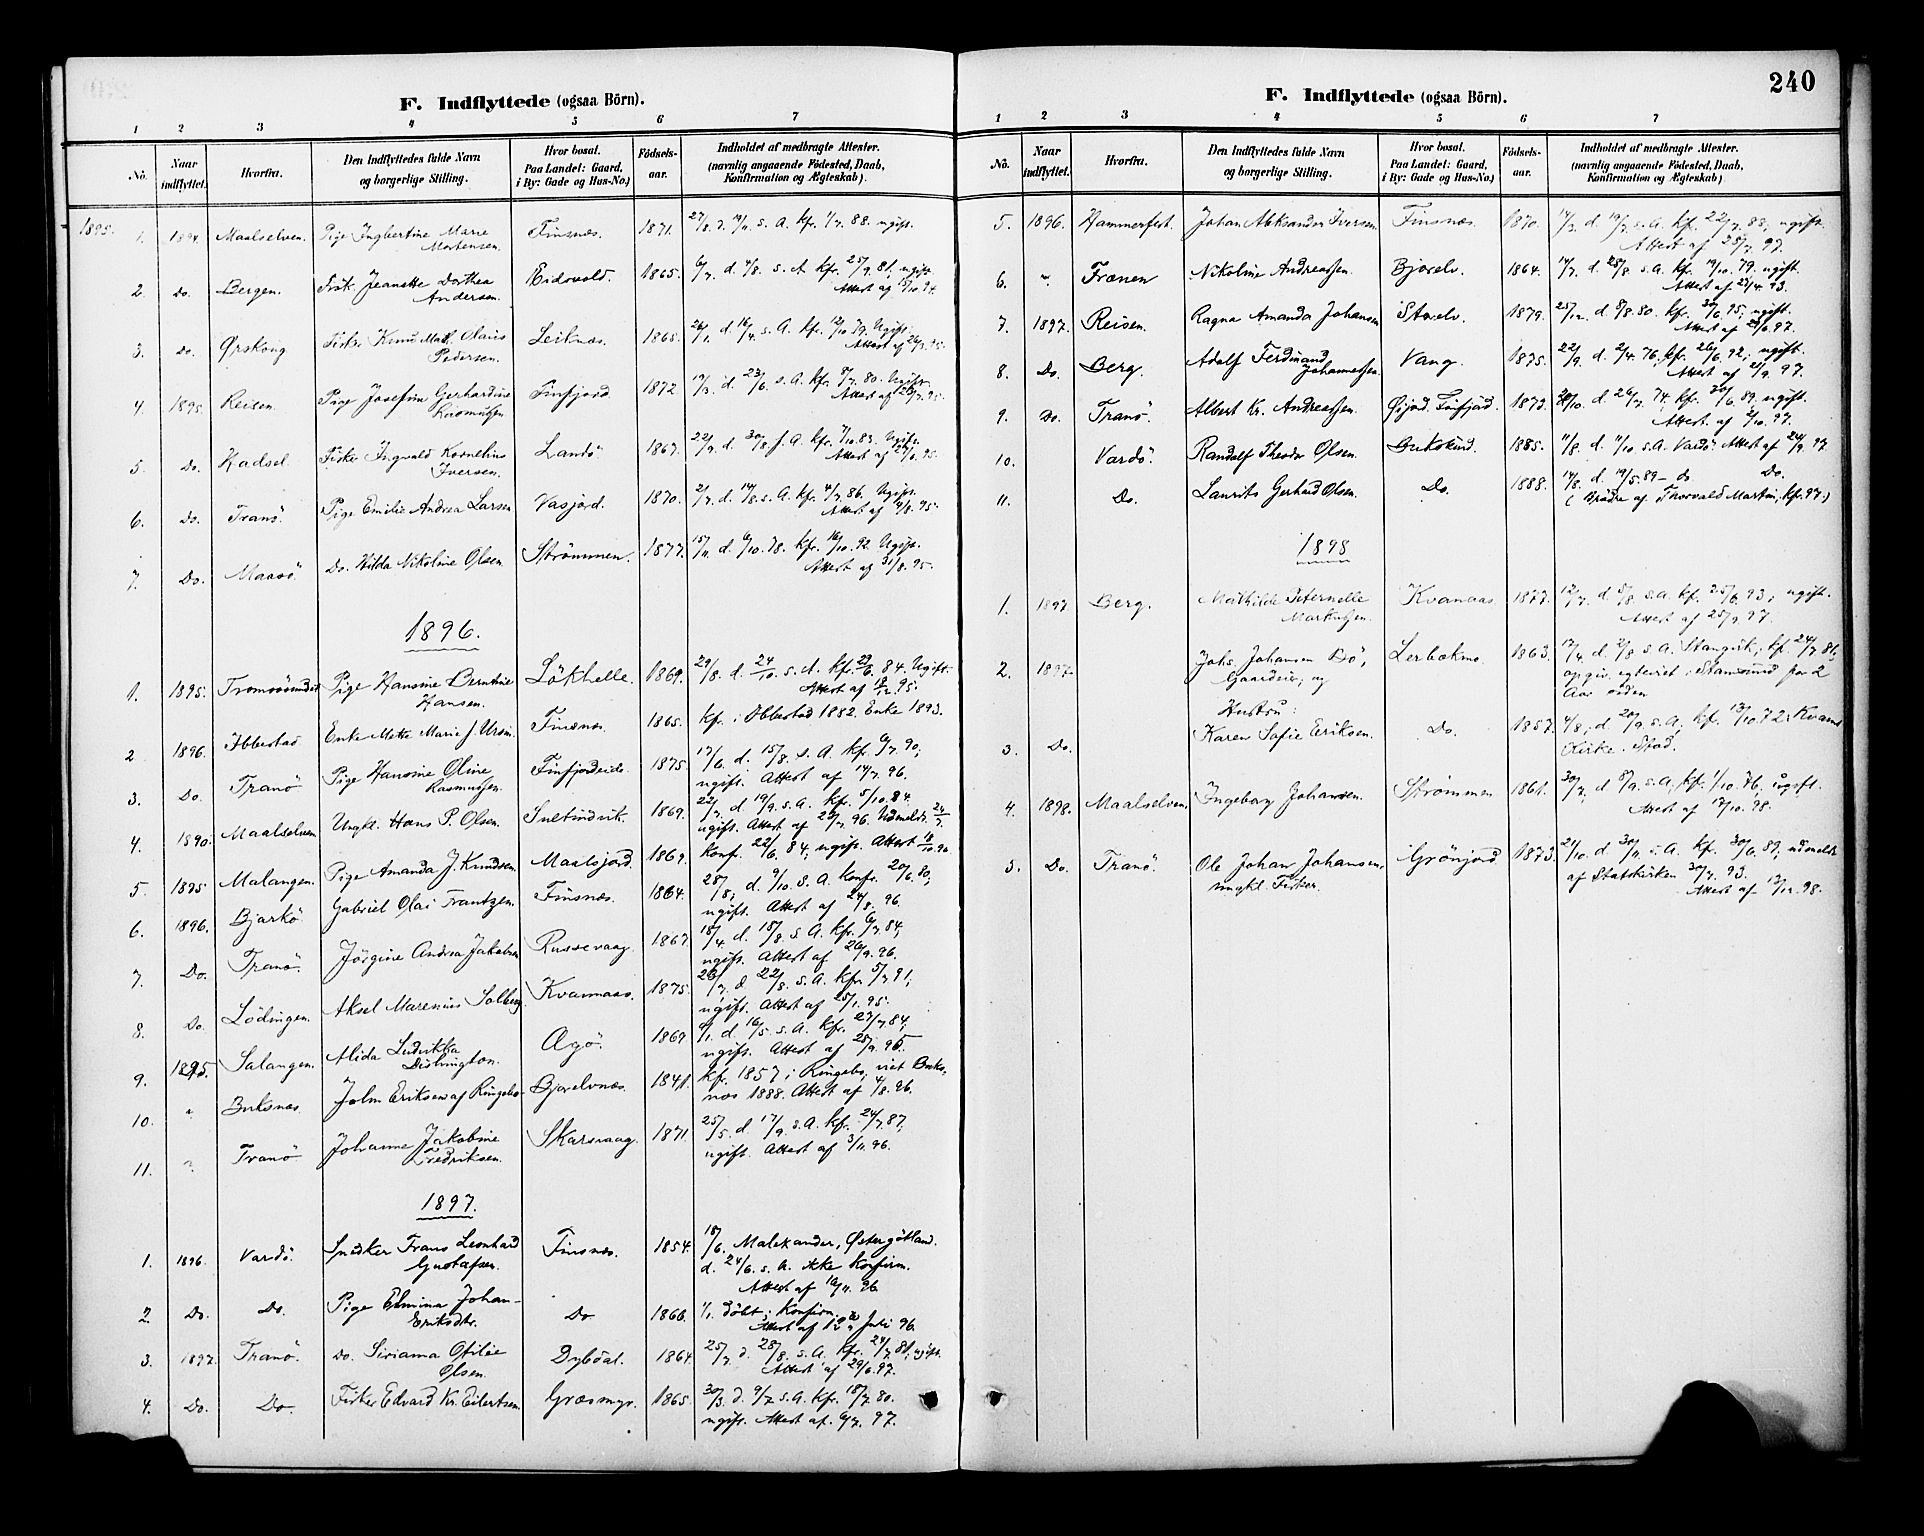 240
F. Indflyttede (ogsaa Börn).
1 2 3 4 5 6 7
No. Naar indflyttet. Hvorfra. Den Indflyttedes fulde Navn og borgerlige Stilling. Hvor bosat. Paa Landet: Gaard, i By: Gade og Hus-No.) Födsels-aar. Indholdet af medbragte Attester. (navnlig angaaende Födested, Daab, Konfirmation og Ægteskab).
1895. 1. 1894. Maalselven. Pige Ingbertine Marie Finsnæs. 1871. 27/8. d. 19/11. s. A. kf. 1/7. 88. ugift.
Mortensen.
2. Do. Bergen. Frøk. Jeanette Dorthea Eidsvold. 1865. 6/7. d. 4/8. s. A. kf. 25/9. 81, ugift.
Andersen. Attest af 15/10. 94.
3. Do. Ørskoug Fisker Knud Mat. Olaus Leiknæs. 1865. 26/1. d. 16/4. s. A. kf. 12/10 79. Ugift.
Pedersen. Attest af 26/3. 95.
4. 1895. Reisen. Pige Josefine Gerhardine Finfjord. 1872. 19/3. d. 23/6. s. A. kf. 8/7. 80. Ugift.
Rasmussen Attest af 29/7. 95.
5. Do. Hadsel. Fisker Ingvald Kornelius Landö. 1867. 22/9. d. 30/8. s. A. kf. 7/10. 83. Ugift.
Iversen. Attest af 27/6. 95.
6. Do. Tranö. Pige Emilie Andrea Larsen Vasjord. 1870. 2/7. d. 14/8. s. A. kf. 4/7. 86. Ugift.
Attest af 4/8. 95.
7. Do. Maasö. Do. Hilda Nikoline Olsen. Strömmen. 1877. 15/11. d. 6/10. 78. kf. 16/10. 92. Ugift.
Attest af 31/8. 95.
1896.
1. 1895. Tromsösundet Pige Hansine Berntine Lökhelle. 1869. 29/8. d. 24/10. s. A. kf. 29/6. 84. Ugift.
Hansen. Attest af 8/12. 95.
2 1896. Ibbestad Enke Mette Marie J. Ursin. Finsnæs. 1865. kf. i Ibbestad 1882. Enke 1893.
3. Do. Tranö Pige Hansine Oline Finfjordeide. 1875. 17/6. d. 15/8. s. A. kf. 6/7. 90,
Rasmussen. ugift. Attest af 14/7. 96.
4. 1890. Maalselven Ungk. Hans P. Olsen. Sultindvik. 1869. 22/7. d 19/9. s. A. kf. 5/10. 84.
ugift. Attest af 29/7. 96. Udmeldt 24/7.
5 1895 Malangen. Pige Amanda J. Knudsen. Maalsjord. 1869. Konf. 22/6. 84; ugift. Attest 18/10. 96
6. 1896. Bjarkö Gabriel Olai Frantzen. Finsnæs. 1864. 28/8, d. 9/10. s. A. Konf. 20/6. 80;
ugift. Attest af 24/8. 96.
7. Do. Tranö. Jörgine Andrea Jakobsen Russevaag. 1867. 18/4. d. 15/8. s. A. kf. 6/7. 84,
ugift. Attest af 26/9. 96.
8. Do. Lödingen. Aksel Marenius Solberg Kvannaas. 1875. 26/7. d. 22/8. s. A. kf. 5/7 91;
ugift. Attest af 25/1. 95.
9. 1895. Salangen. Alida Ludvikka Agö. 1869 6/1. d. 16/5. s. A. kf. 27/7. 84,
Distington. ugift. Attest af 28/9. 95.
10. " Buksnæs. John Eriksen af Ringebo. Bjorelvnæs. 1841. kf. 1857 i Ringebo, viet Buks-
næs 1888. Attest af 4/8. 96.
11. " Tranö Johanne Jakobine Skarsvaag. 1871. 25/5. d. 17/9. s. A. kf. 24/7. 87,
Fredriksen. ugift. Attest af 3/11. 96.
1897.
1. 1896. Vardö. Snedker Frans Leonhard Finsnæs. 1854. 18/6. Malexander, Östergötland.
Gustafsen. d. 24/6. s. A. ikke Konfirm.
Attest af 10/11. 96.
2. Do. Do. Pige Elmina Johan- Do 1866. 1/1. döbt; Konfirm.
Eriksdtr. Attest af 12te Juli 96.
3. 1897. Tranö. Do. Siriama Ofilie Dybdal. 1864. 25/7. d. 28/8. s. A. kf. 24/7. 81; ugift.
Olsen. Attest af 29/6. 97.
4. Do. Do. Fisker Edvard Kr. Eilertsen. Græsmyr. 1865. 30/3. d. 9/7. s. A. kf. 18/7. 80.
ugift. Attest af 6/7. 97.
F. Indflyttede (ogsaa Börn).
1 2 3 4 5 6 7
No. Naar indflyttet. Hvorfra. Den Indflyttedes fulde Navn og borgerlige Stilling. Hvor bosat. Paa Landet: Gaard, i By: Gade og Hus-No.) Födsels-aar. Indholdet af medbragte Attester. (navnlig angaaende Födested, Daab, Konfirmation og Ægteskab).
5. 1896. Hammerfest. Johan Aleksander Iversen. Finsnæs. 1870. 14/2. d. 19/7. s. A. kf. 22/7. 88, ugift.
Attest af 25/7. 97.
6. " Frænen Nikoline Andreassen. Bjorelv. 1864. 14/7. d. 28/8. s. A. kf. 19/10. 79. ugift.
Attest af 23/4. 93.
7. 1897. Reisen. Ragna Amanda Johansen Storelv. 1879. 25/12. d. 8/8. 80. kf. 30/6. 95, ugift.
Attest af 21/6. 97.
8. Do. Berg. Adolf Ferdinand Vang. 1875. 22/9. d. 2/4. 76, kf. 26/6. 92, ugift.
Johannessen. Attest af 21/9. 97.
9. Do. Tranö. Albert Kr. Andreassen. Øijord. Finfjord. 1873. 20/10. d. 26/7. 74, kf. 30/6. 89, ugift.
Attest. af 2/10. 97.
10. Vardö. Randolf Theodor Olsen. Gukskind. 1885. 11/8. d. 11/10 s. A. Vardö. Attest af 24/9. 97.
11. Do. Laurits Gerhard Olsen. Do. 1888. 14/8. d. 19/5. 89 - do Do.
(Brödre af Thorvald Martin, kf. 97.)
1898
1. 1897 Berg. Mathilde Peternelle Kvannaas 1877. 12/7. d. 5/8. s. A. kf. 25/6. 93, ugift.
Markussen. Attest af 25/9. 97.
2. 1897 Johs. Johansen Bö, Lerbækmo. 1863. 17/4. d. 2/8 s. A. Stangvik; kf. 24/7. 81,
Gaardeier, og opgiv. egteviet i Stamsund for 2
Aar siden
Hustru:
3. Do. Karen Sofie Eriksen. Do. 1857. 4/8, d. 20/9. s. A., kf. 13/10. 72. Kvams
Kirke. Stod.
4. 1898. Maalselven. Ingeborg Johansen. Strömmen 1861. 30/7, d 8/9. s. A, kf. 1/10. 76, ugift.
Attest af 17/10. 98.
5. Do. Tranö. Ole Johan Johansen, Grönjord. 1873. 21/10. d 30/11. s. A. kf. 30/6. 89, udmeldt
ungkl. Fisker. af Statskirken 30/7. 93.
Attest af 13/12. 98.